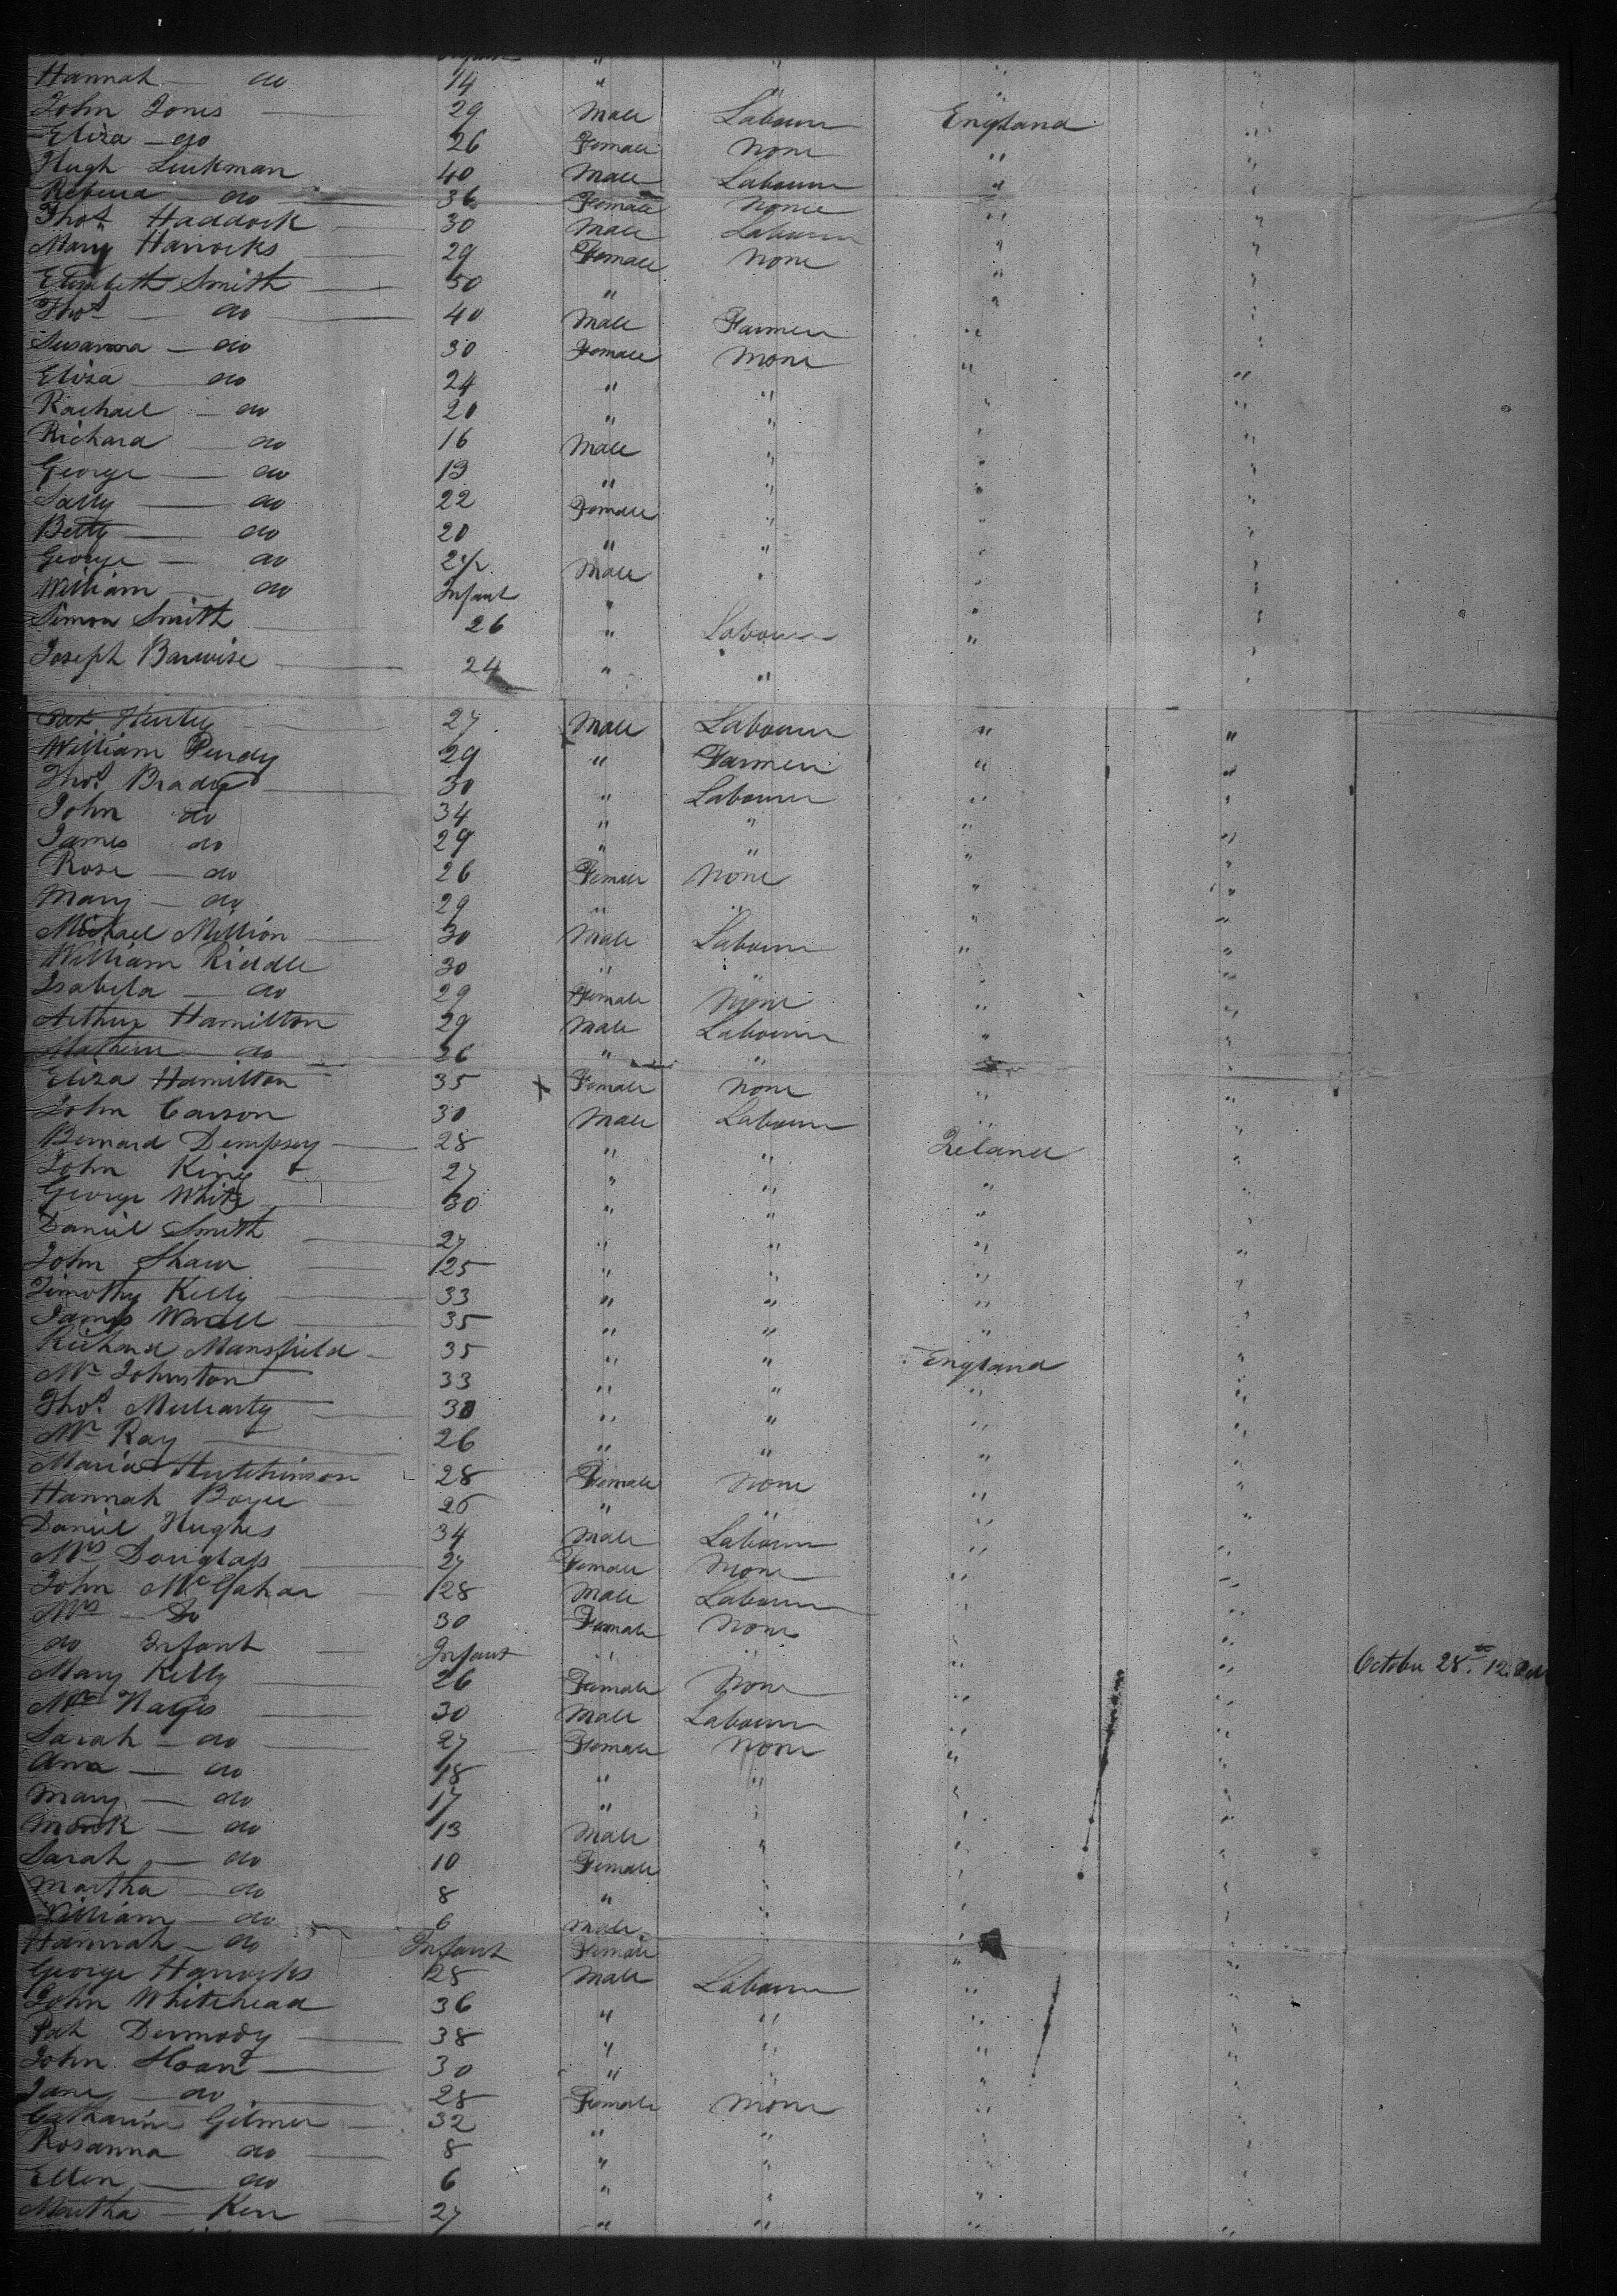 Hannah — do 14 " " "
John Jones — 29 Male Labourer England "
Eliza — do 26 Female None " "
Hugh 40 Male Labourer " "
do 36 Female None " "
Thos Haddock — 30 Male Labourer " "
Mary Harrocks — 29 Female None " "
Elizabeth Smith — 50 " " "
Thos — do — 40 Male Farmer " "
Susanna — do 30 Female None " "
Eliza — do 24 " " " "
Rachael — do 20 " " " "
Richard — do 16 Male " " "
George — do 13 " " " "
Sally — do 22 Female " " "
Betty — do 20 " " " "
George — do Male " " "
William — do Infant " " "
Simon Smith — 26 " Labourer " "
Joseph Barwise — 24 " " "
27 Male Labourer " "
William Purdy 29 " Farmer " "
Thos. Brady — 30 " Labourer " "
John do 34 " " " "
James do 29 " " " "
Rose — do 26 Female None " "
Mary — do 29 " " " "
Michael Million — 30 Male Labourer " "
William Riddle 30 " " "
Isabela — do 29 Female None " "
Arthur Hamilton 29 Male Labourer " "
Mathew — do 26 " " "
Eliza Hamilton 35 x Female None " "
John Carson 30 Male Labourer " "
Bernard Dempsey — 28 " " Ireland "
John King — 27 " " " "
George White — 30 " " " "
Daniel Smith — 27 " " " "
John Shaw — 25 " " " "
Timothy Kelly — 33 " " " "
James — 35 " " " "
Richard Mansfield — 35 " " England "
Mr Johnston 33 " " " "
Thos. — 30 " " " "
Mr Ray — 26 " " " "
Maria Hutchinson 28 Female None " "
Hannah — 26 " " " "
Daniel Hughes 34 Male Labourer " "
Mrs Douglass — 27 Female None " "
John McGahan — 28 Male Labourer " "
Mrs — Do 30 Female None " "
do Infant — Infant " " " " October 28th 12
Mary Kelly — 26 Female None " "
30 Male Labourer " "
Sarah — do — 27 Female None " "
Ann — do 18 " " " "
Mary — do 17 " " " "
do 13 Male " " "
Sarah — do 10 Female " "
Martha — do 8 " " " "
William — do 6 Male " " "
Hannah — do Infant Female " "
George Harrocks 28 Male Labourer " "
John Whitehead 36 " " " "
Pat Dermody — 38 " " " "
John Sloan — 30 " " " "
Jane — do — 28 Female None " "
Catharine Gilmer — 32 " " " "
Rosanna do — 8 " " " "
Ellen — do 6 " " " "
Martha — Kerr — 27 " " " "